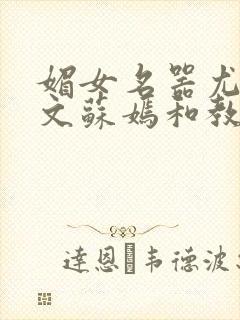 媚女名器尤
文蘇媽和教
達恩 韦德波